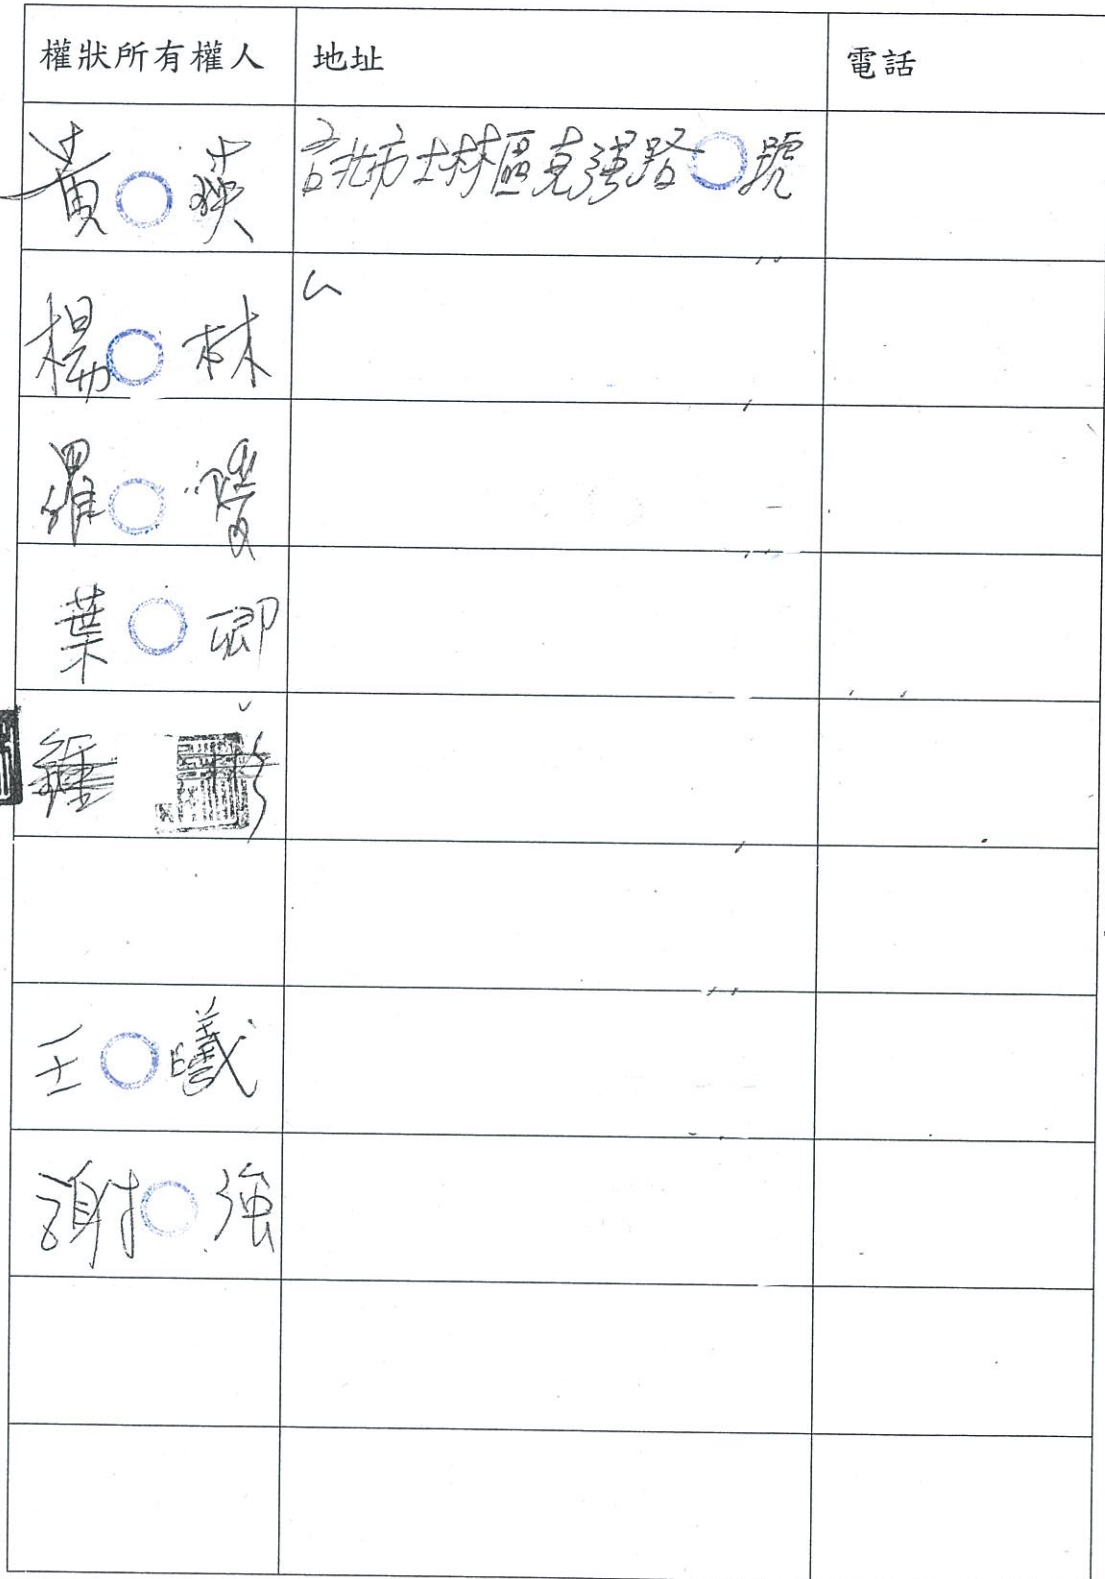 權狀所有權人 地址 電話
黃○瑛 台北市士林區克強路○號
楊○林
羅○瓊
葉○卿
鍾
王○曦
謝○強